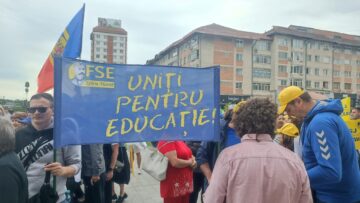 FSE
UNIȚI
PENTRU
EDUCAȚIE!